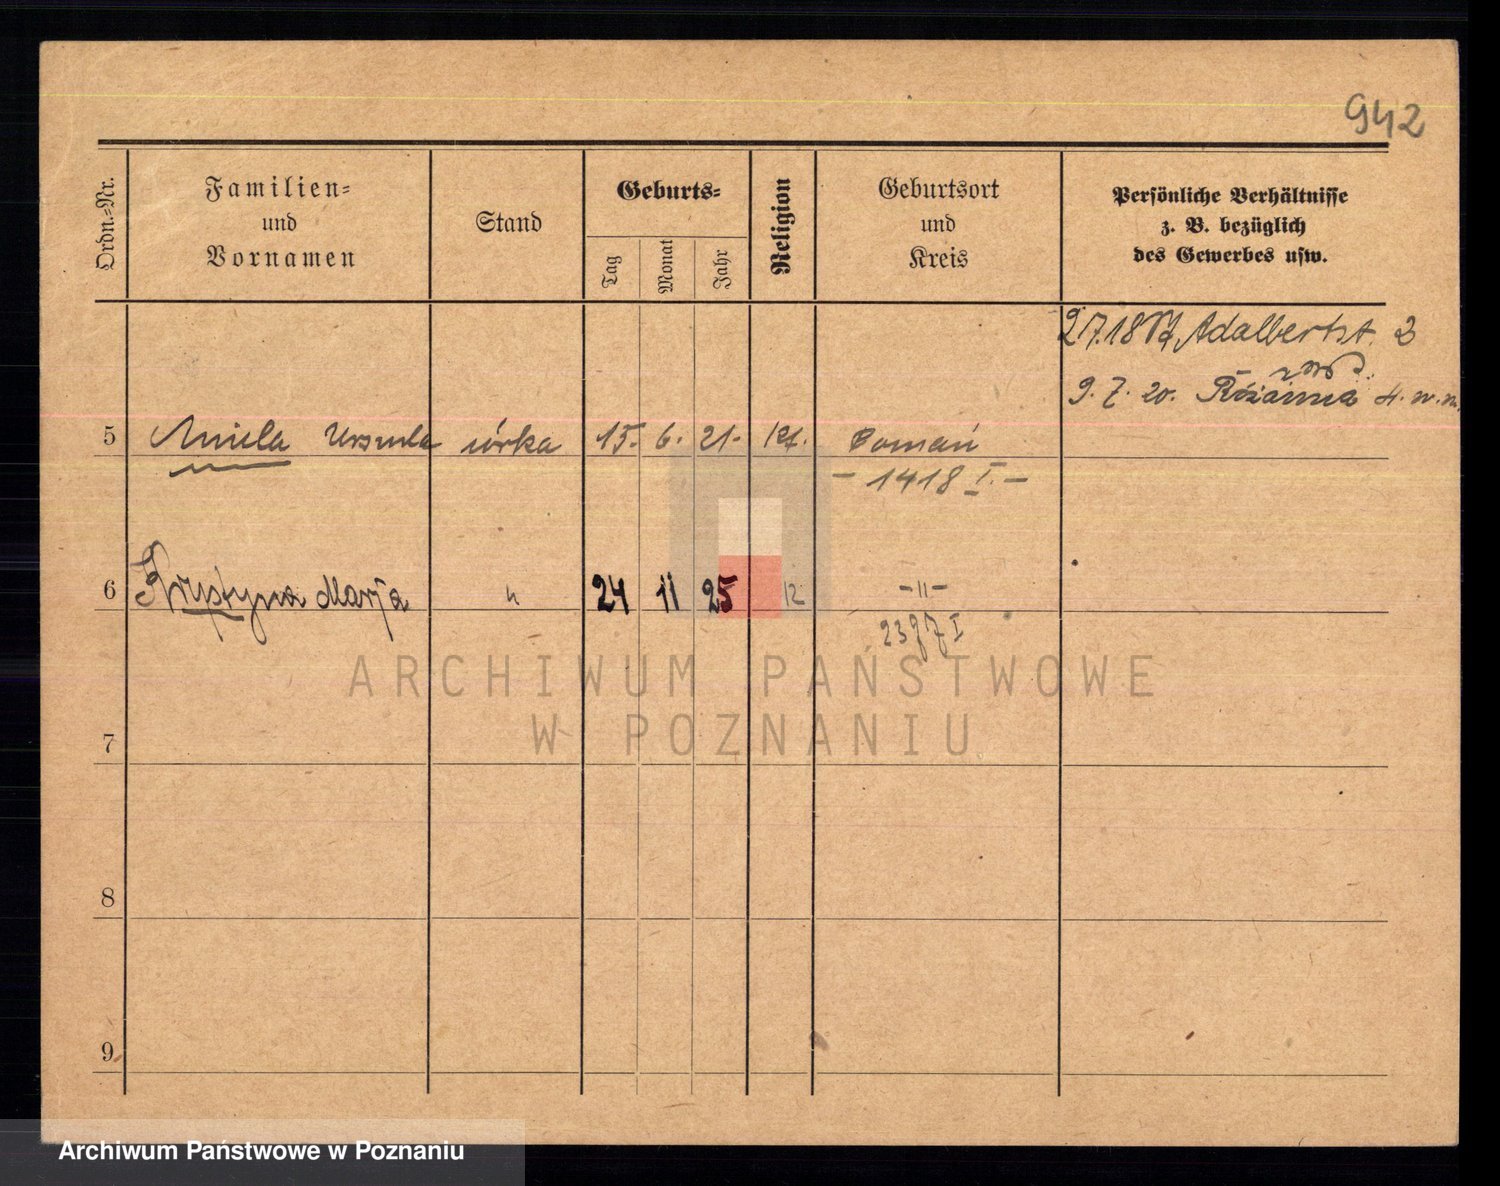 942
Ordn.-Nr.
Familien-
und
Vornamen
Stand
Geburts-
Tag
Monat
Jahr
Religion
Geburtsort
und
Kreis
Persönliche Verhältnisse
z. B. bezüglich
des Gewerbes usw.
Adalbertst. 2
9. 7. 20. Różanna 4.
5 Aniela Urszula córka 15. 6. 21. kt. Poznań
- 1418 I. -
6 Krystyna Marja " 24 11 25 -"-
ARCHIWUM PAŃSTWOWE
W POZNANIU
7
8
9
Archiwum Państwowe w Poznaniu